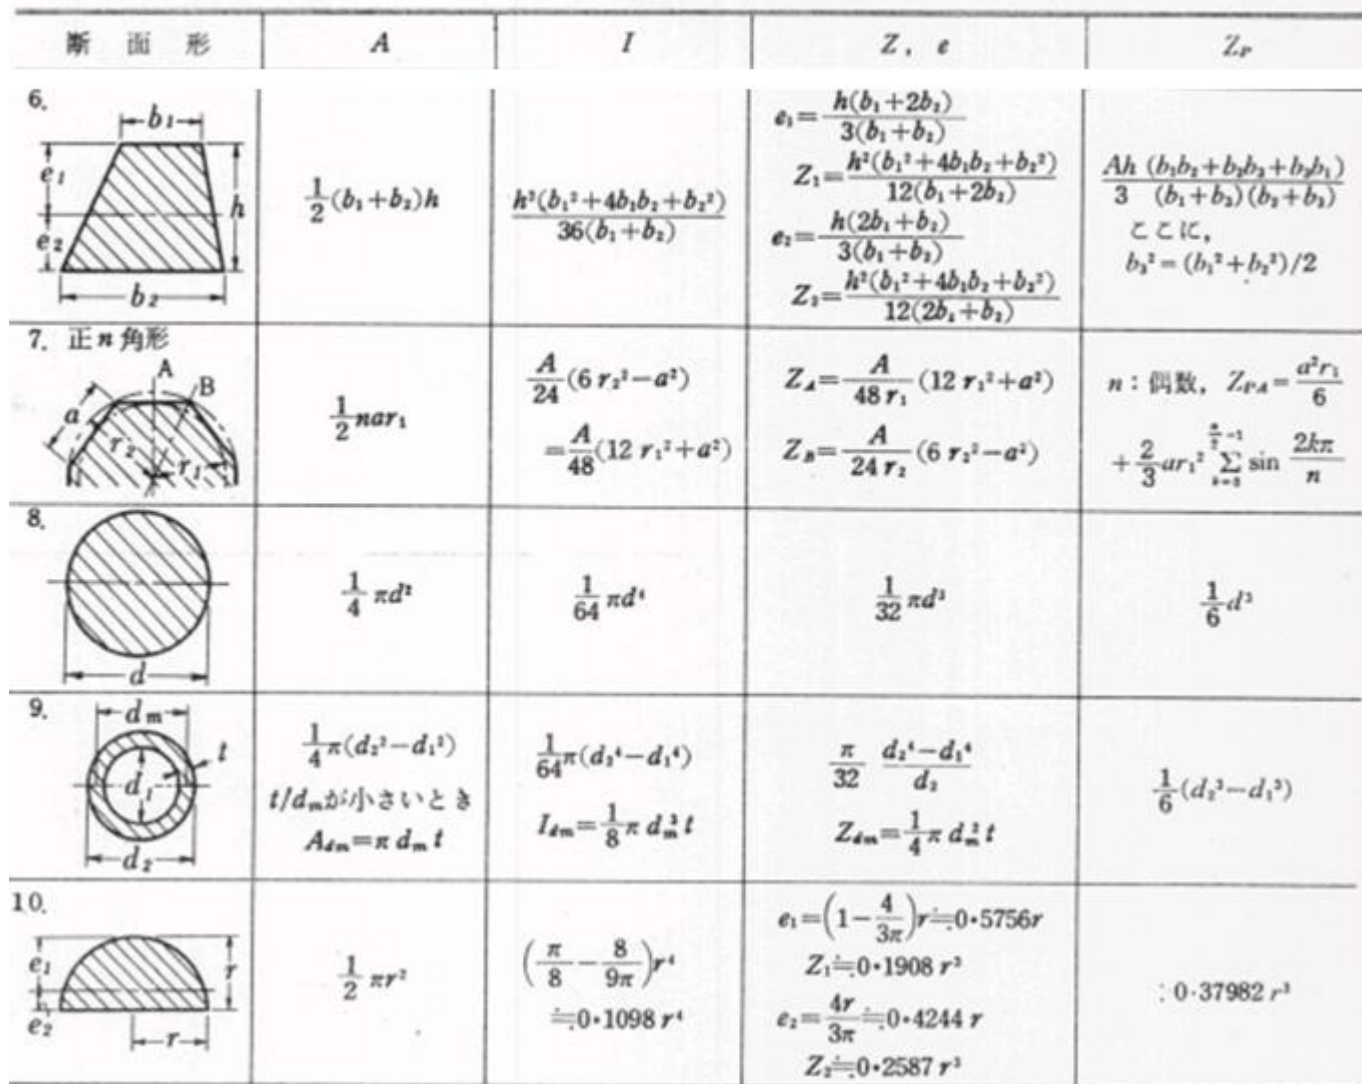 断面形 A I Z, e Z_P
6.
b₁
e₁
e₂
h
b₂
1/2 (b₁+b₂)h
h³(b₁²+4b₁b₂+b₂²) / 36(b₁+b₂)
e₁=h(b₁+2b₂) / 3(b₁+b₂)
Z₁=h²(b₁²+4b₁b₂+b₂²) / 12(b₁+2b₂)
e₂=h(2b₁+b₂) / 3(b₁+b₂)
Z₂=h²(b₁²+4b₁b₂+b₂²) / 12(2b₁+b₂)
Ah/3 (b₁b₂+b₂b₃+b₃b₁) / (b₁+b₃)(b₂+b₃)
ここに,
b₃²=(b₁²+b₂²)/2
7. 正n角形
A
B
a
r₂
r₁
1/2 nar₁
A/24 (6r₂²−a²)
=A/48 (12r₁²+a²)
Z_A=A/48r₁ (12r₁²+a²)
Z_B=A/24r₂ (6r₂²−a²)
n:偶数, Z_PA=a²r₁/6
+2/3 ar₁² Σ sin 2kπ/n
8.
d
1/4 πd²
1/64 πd⁴
1/32 πd³
1/6 d³
9.
d_m
t
d₁
d₂
1/4 π(d₂²−d₁²)
t/d_mが小さいとき
A_dm=π d_m t
1/64 π(d₂⁴−d₁⁴)
I_dm=1/8 π d_m³ t
π/32 d₂⁴−d₁⁴/d₂
Z_dm=1/4 π d_m² t
1/6 (d₂³−d₁³)
10.
e₁
e₂
r
r
1/2 πr²
(π/8 − 8/9π)r⁴
≒0·1098 r⁴
e₁=(1−4/3π)r≒0·5756r
Z₁≒0·1908 r³
e₂=4r/3π≒0·4244 r
Z₂≒0·2587 r³
0·37982 r³